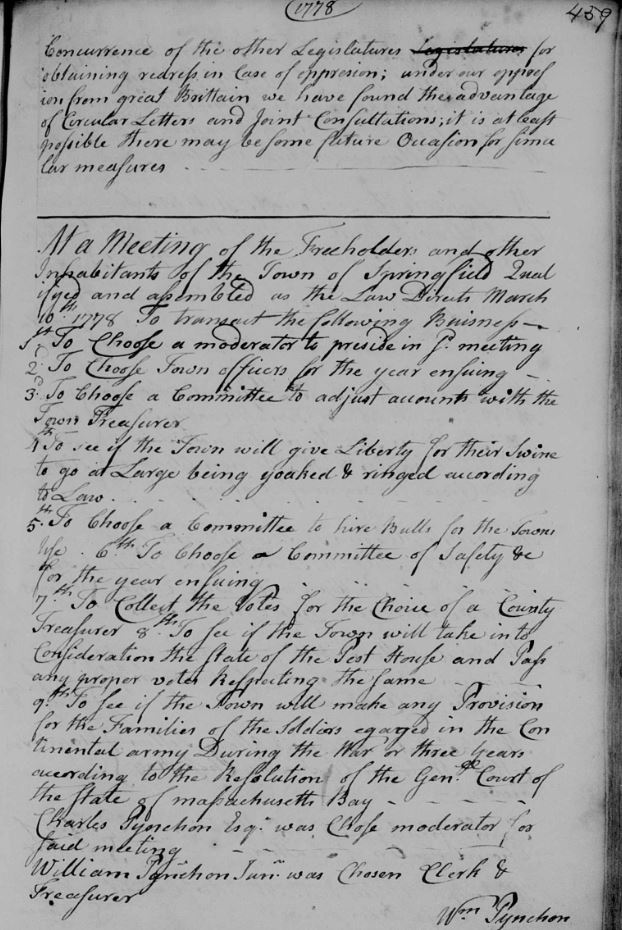 1778
459
Concurrence of the other Legislatures Legislatures for
obtaining redress in Case of oppresion; under our oppress
ion from great Brittain we have found the advantage
of Circular Letters and Joint Consultations; it is at least
possible there may be some future Occasion for simu
lar measures
At a Meeting of the Freeholders and other
Inhabitants of the Town of Springfield Qual
ifyed and assembled as the Law Directs March
10th 1778 To transact the following Buisness
1st To Choose a moderator to preside in sd. meeting
2d To Choose Town officers for the year ensuing
3d To Choose a Committee to adjust accounts with the
Town Treasurer
4th To see if the Town will give Liberty for their Swine
to go at Large being yoaked & ringed according
to Law
5th To Choose a Committee to hire Bulls for the Towns
Use. 6th To Choose a Committee of Safety &c
for the year ensuing
7th To Collect the Votes for the Choice of a County
Treasurer 8th To see if the Town will take into
Consideration the State of the Pest House and Pass
any proper votes Respecting the same
9th To see if the Town will make any Provision
for the Families of the Soldiers egaged in the Con
tinental army During the War or three Years
according to the Resolution of the Genll Court of
the State of massachusetts Bay
Charles Pynchon Esqr. was Chose moderator for
said meeting
William Pynchon Junr. was Chosen Clerk &
Treasurer
Wm Pynchon